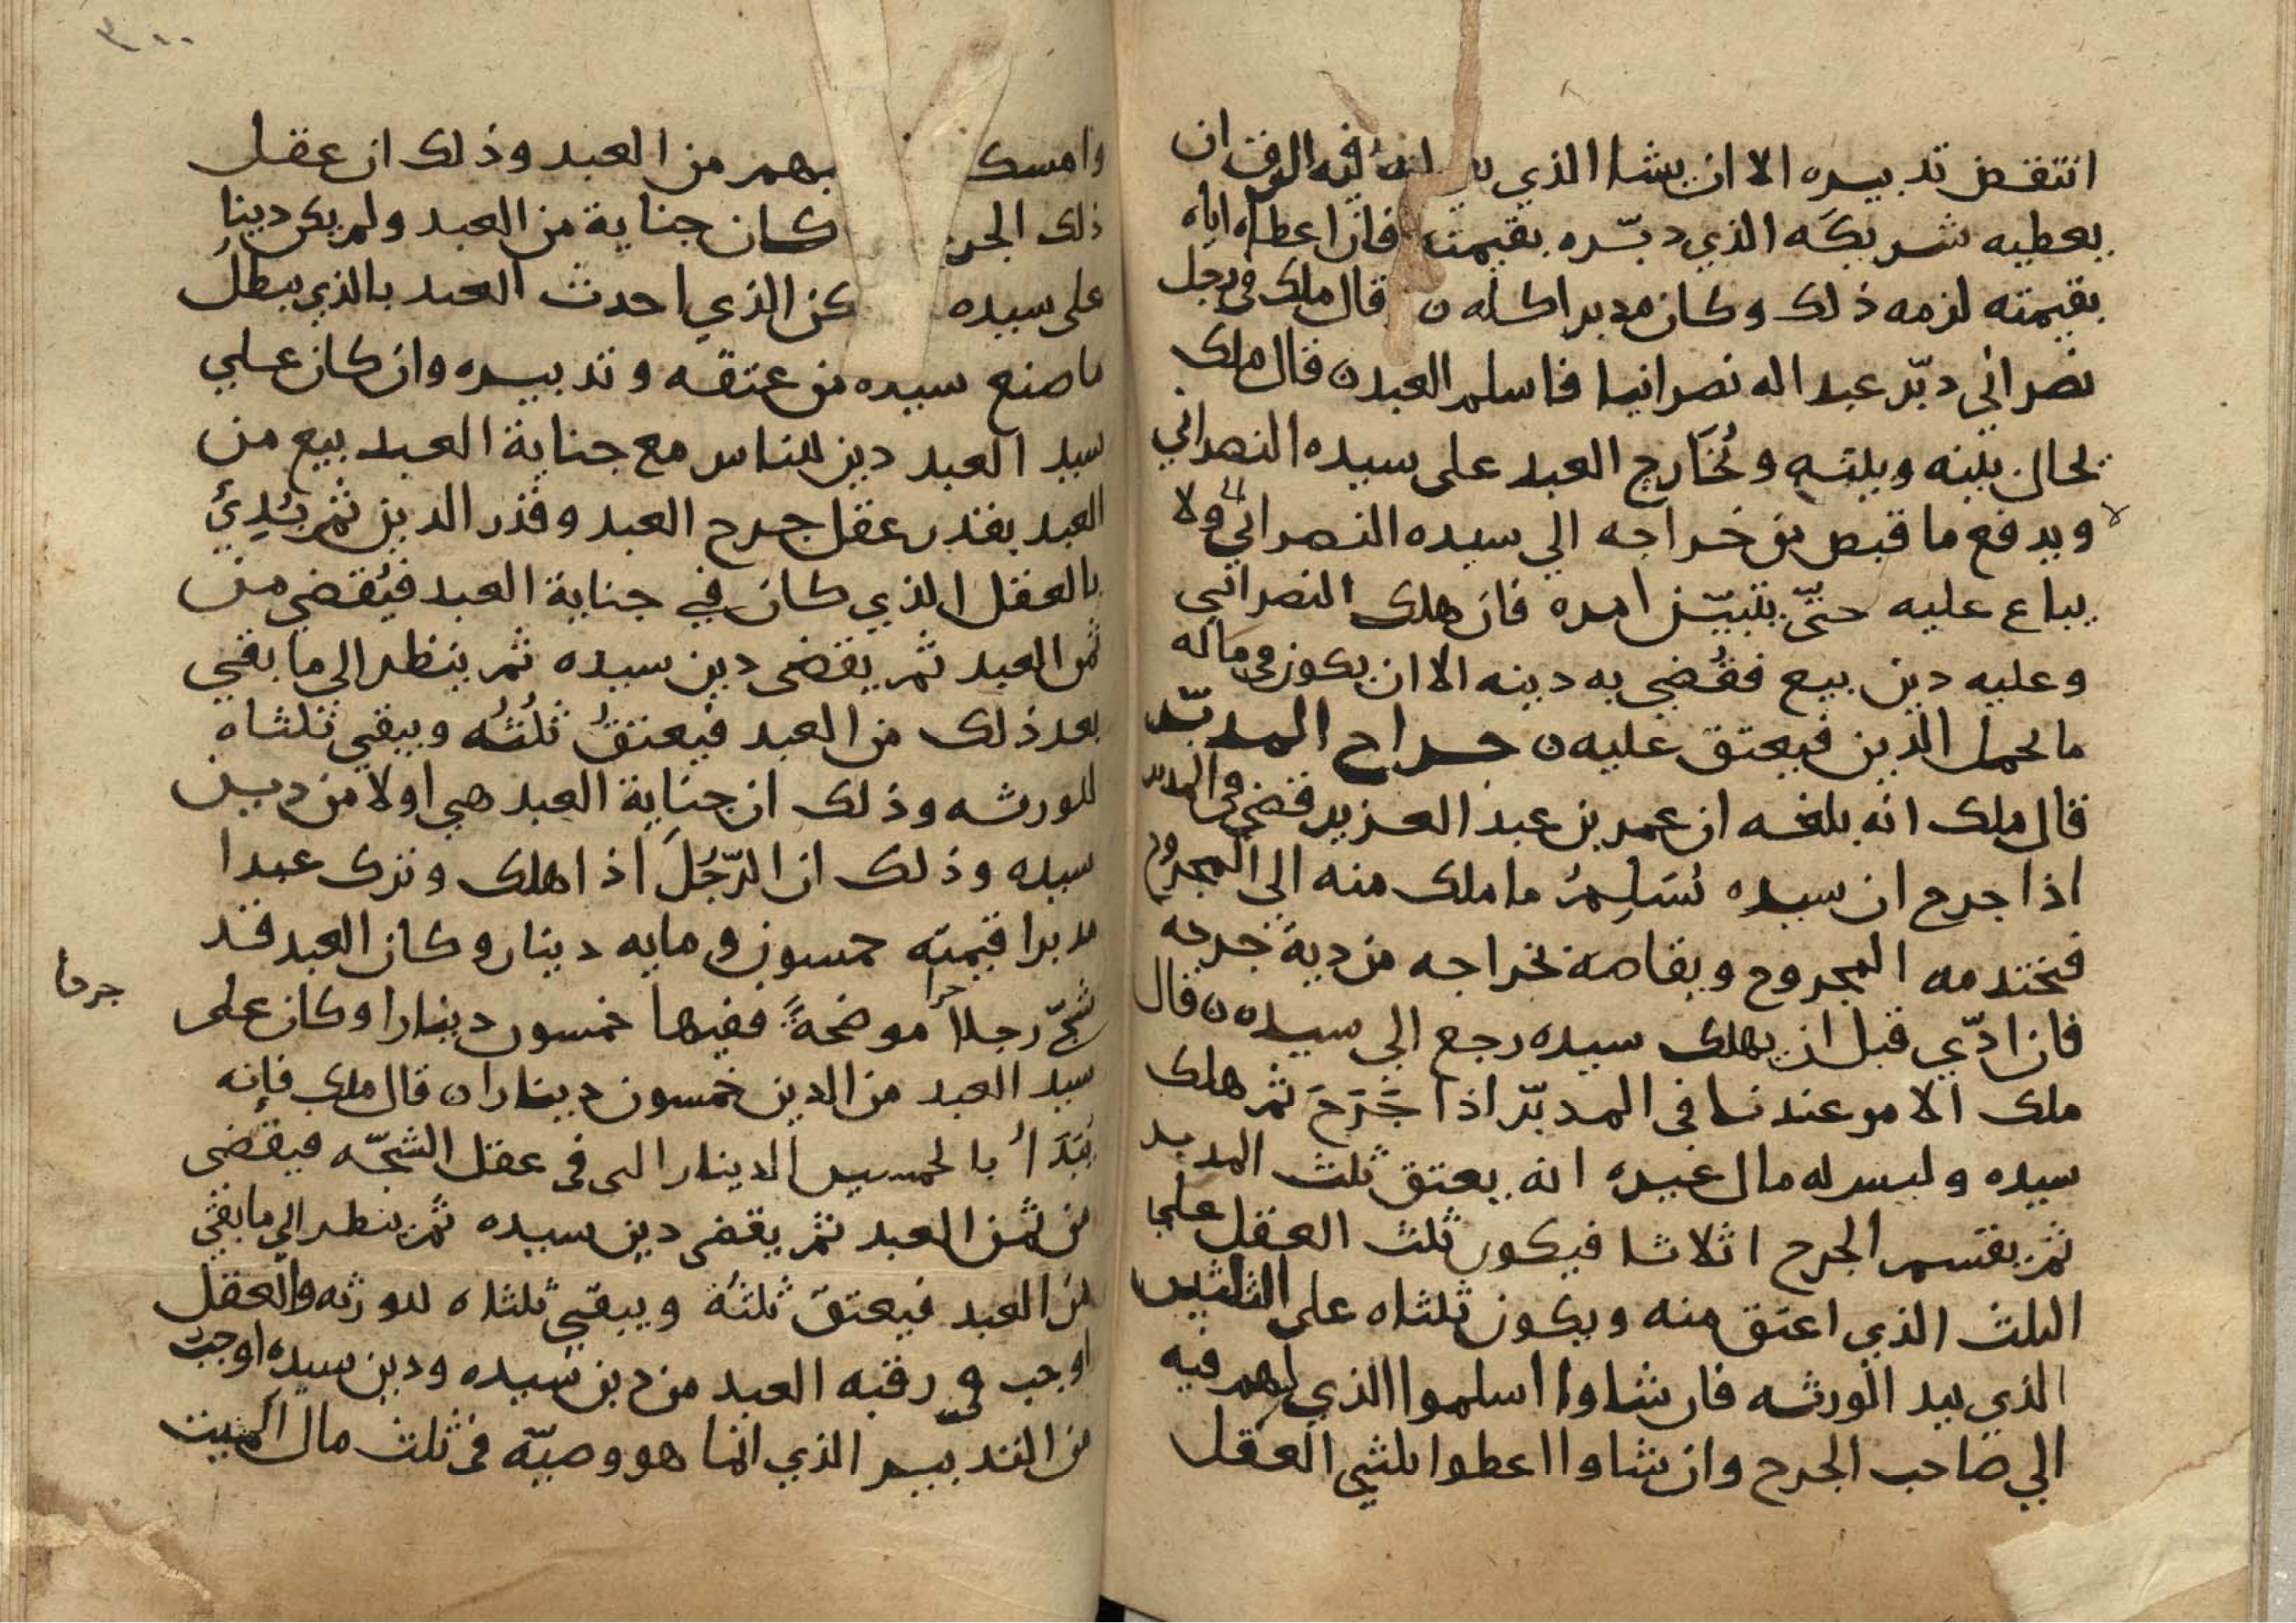 انتقض تدبيره الا ان يشا الذي بقي له فيه الرق ان
يعطيه شريكه الذي دبّره بقيمته فان اعطاه اياه
بقيمته لزمه ذلك وكان مدبرا كله ن قال ملك في رجل
نصراني دبّر عبدا له نصرانيا فاسلم العبد ن قال ملك
يحال بينه وبينه ويُخَارج العبد على سيده النصراني
ويدفع ما قبض من خراجه الي سيده النصراني ولا
يباع عليه حتّى يتبيّن امره فان هلك النصراني
وعليه دين بيع فقُضي به دينه الا ان يكون في ماله
ما يحمل الدين فيعتق عليه ن جراح المدبّر
قال ملك انه بلغه ان عمر بن عبد العزيز قضي في المدبر
اذا جرح ان سيده يُسَلِمُ ما ملك منه الي المجروح
فيختدمه المجروح ويقاصه بخراجه من دية جرحه
فان ادّي قبل ان يهلك سيده رجع الي سيده ن قال
ملك الامر عندنا في المدبّر اذا جَرَحَ ثم هلك
سيده وليس له مال غيره انه يعتق ثلث المدبر
ثم يقتسم الجرح اثلاثا فيكون ثلث العقل علي
الثلث الذي اعتق منه ويكون ثلثاه على الثلثين
الذي بيد الورثه فان شاوا اسلموا الذي لهم فيه
الي صاحب الجرح وان شاوا اعطوا ثلثي العقل
٣٠٠
وامسكوا نصيبهم من العبد وذلك ان عقل
ذلك الجرح كان جناية من العبد ولم يكن دينا
على سيده يكن الذي احدث العبد بالذي يبطلُ
ما صنع سيده من عتقه وتدبيره وان كان علي
سيد العبد دين للناس مع جناية العبد بيع من
العبد بقدر عقل جرح العبد وقدر الدين ثم يُبدئُ
بالعقل الذي كان في جناية العبد فيُقضي من
ثمن العبد ثم يقضى دين سيده ثم ينظر الي ما بقي
بعد ذلك من العبد فيعتقُ ثلُثُه ويبقي ثلثاه
للورثه وذلك ان جناية العبد هي اولا من دين
سيده وذلك ان الرّجُلَ اذا هلك وترك عبدا
مدبرا قيمته خمسون ومايه دينار وكان العبد قد
شجّ رجلا حرا موضحةً ففيها خمسون دينارا وكان على
جرحا
سيد العبد من الدين خمسون دينارا ن قال ملك فإنه
يُبَدَأُ بالخمسين الدينار التي في عقل الشجّه فيقضى
من ثمن العبد ثم يقضى دين سيده ثم ينظر الي ما بقي
من العبد فيعتق ثلثُهُ ويبقي ثلثاه للورثه والعقل
اوجب في رقبه العبد من دين سيده ودين سيده اوجب
من التدبير الذي انما هو وصيّه في ثلث مال الميت